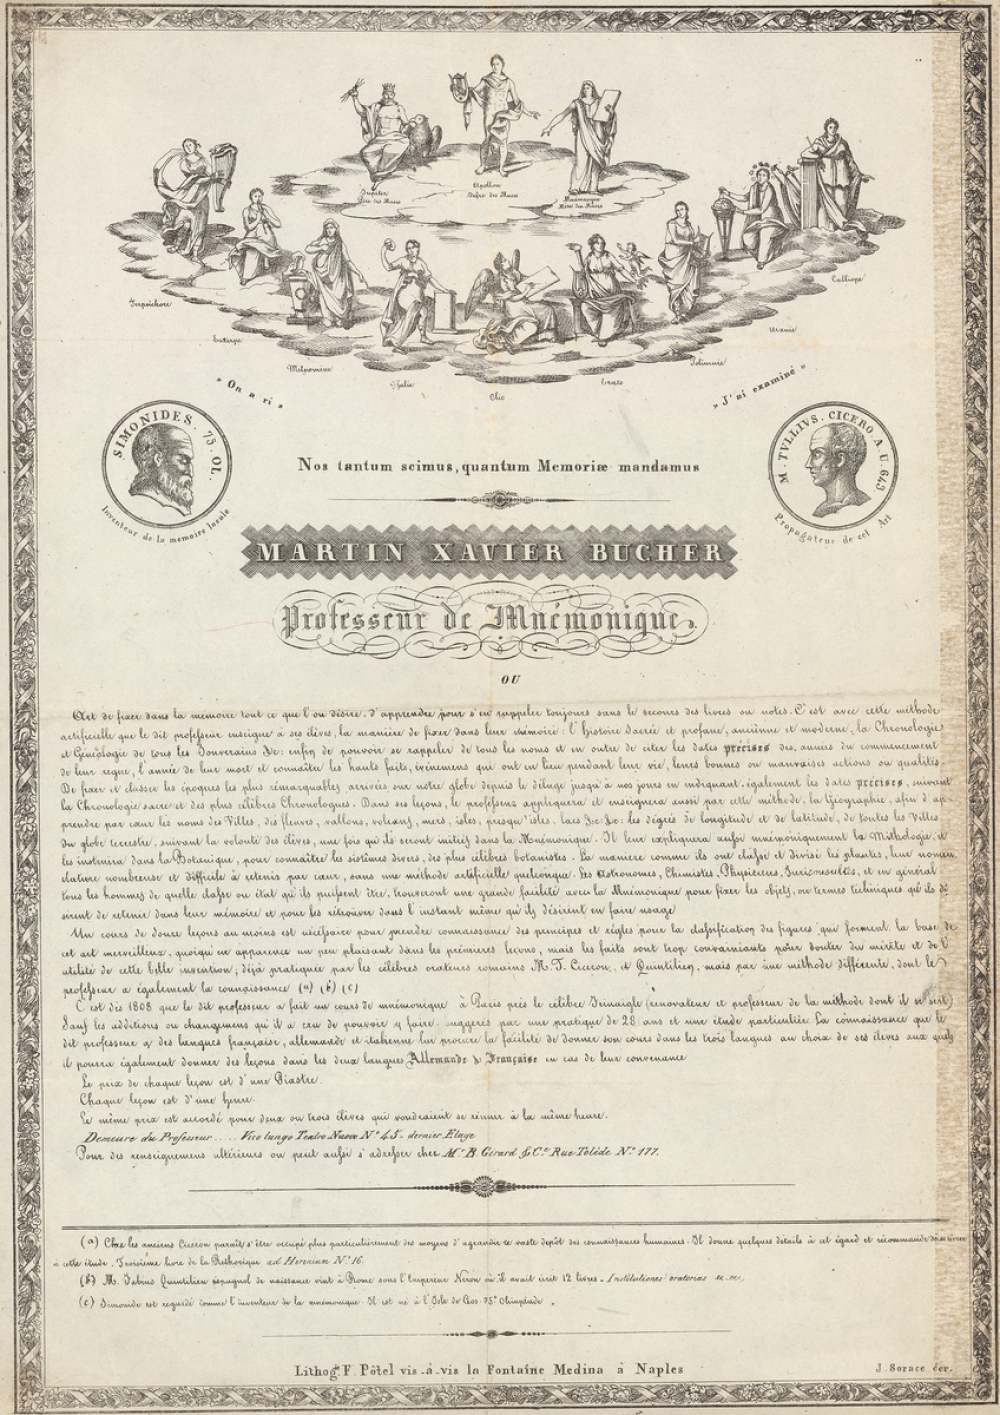 Jupiter
Père des Muses
Apollon
Mnémosyne
Mère des Muses
Terpsichore
Euterpe
Melpomène
Thalie
Clio
Erato
Polimnie
Uranie
Calliope
" On a ri "
" J'ai examiné "
SIMONIDES. 75. OL.
Inventeur de la memoire locale
M. TVLLIVS. CICERO A. U. 643
Propagateur de cet Art
Nos tantum scimus, quantum Memoriæ mandamus
MARTIN XAVIER BUCHER
Professeur de Mnémonique.
OU
Art de fixer dans la memoire tout ce que l'on désire d'apprendre pour s'en rappeler toujours sans le secours des livres ou notes. C'est avec cette méthode
artificielle que le dit professeur enseigne à ses élèves, la manière de fixer dans leur mémoire: l'histoire Sacrée et profane, ancienne et moderne, la Chronologie
et Généologie de tous les Souverains &c: enfin de pouvoir se rappeler de tous les noms et en outre de citer les dates précises des annés du commencement
de leur regne, l'année de leur mort et connaître les hauts faits, événemens qui ont eu lieu pendant leur vie, leurs bonnes ou mauvaises actions ou qualités.
De fixer et classer les époques les plus rémarquables arrivées sur notre globe depuis le déluge jusqu'à nos jours en indiquant également les dates précises, suivant
la Chronologie sacre et des plus célèbres Chronologues. Dans ses leçons, le professeur appliquera et enseignera aussi par cette méthode, la Géographie, afin d'ap-
prendre par cœur les noms des Villes, des fleuves, vallons, volcans, mers, isles, presqu'isles, lacs &c: &c: les dégrés de longitude et de latitude, de toutes les Villes
du globe terrestre, suivant la volonté des élèves, une fois qu'ils seront initiés dans la Mnémonique. Il leur expliquera aussi mnémoniquement la Mithologie, et
les instruira dans la Botanique, pour connaître les sistèmes divers, des plus célèbres botanistes. La manière comme ils ont classé et divisé les plantes, leur nomen
clature nombreuse et difficile à retenir par cœur, sans une méthode artificielle quelconque. Les Astronomes, Chimistes, Physiciens, Jurisconsultes, et en général
tous les hommes de quelle classe ou état qu'ils puissent être, trouveront une grande facilité avec la Mnémonique pour fixer les objets, ou termes techniques qu'ils dé
sirent de retenir dans leur mémoire et pour les rétrouver dans l'instant même qu'ils désirent en faire usage
Un cours de douze leçons au moins est nécessaire pour prendre connaissance des principes et régles pour la classification des figures qui forment la base de
cet art merveilleux, quoiqu'en apparence un peu plaisant dans les prémieres lecons, mais les faits sont trop convainquants pour douter du mérite et de l'
utilité de cette belle invention; déjà pratiquée par les célèbres orateurs romains M. T. Ciceron, et Quintilien, mais par une méthode différente, dont le
professeur a également la connaissance (a) (b) (c)
C'est dès 1808 que le dit professeur a fait un cours de mnémonique à Paris près le célèbre Feinaigle (rénovateur et professeur de la méthode dont il se sert)
Sauf les additions ou changemens qu'il a cru de pouvoir y faire suggerés par une pratique de 28 ans et une étude particulière La connaissance que le
dit professeur a des langues française, allemande et italienne lui procure la facilité de donner son cours dans les trois langues au choix de ses élèves aux quels
il pourra également donner des leçons dans les deux langues Allemande & Française en cas de leur convenance
Le prix de chaque leçon est d'une Piastre.
Chaque leçon est d'une heure.
Le même prix est accordé pour deux ou trois élèves qui voudraient se réunir à la même heure.
Demeure du Professeur ..... Vico lungo Teatro Nuovo N.° 45 - dernier Etage
Pour des renseignemens ultérieurs on peut aussi s'adresser chez M.rs B. Gérard & C.e Rue Tolède N.° 177.
(a) Chez les anciens Ciceron paraît s'être occupé plus particulièrement des moyens d'agrandir ce vaste depôt des connaissances humaines. Il donne quelques détails à cet égard et récommande de se livrer
à cette étude. Troisième livre de la Rethorique ad Herenium N.° 16.
(b) M. Fabius Quintilien espagnol de naissance vint à Rome sous l'Empereur Néron où il avait écrit 12 livres. Institutiones oratorias
(c) Simonide est regardé comme l'inventeur de la mnémonique. Il est né à l'Isle de Ceos. 75.e Olimpiade.
Lithog. F. Pôtel vis-à-vis la Fontaine Medina à Naples
J. Sorace